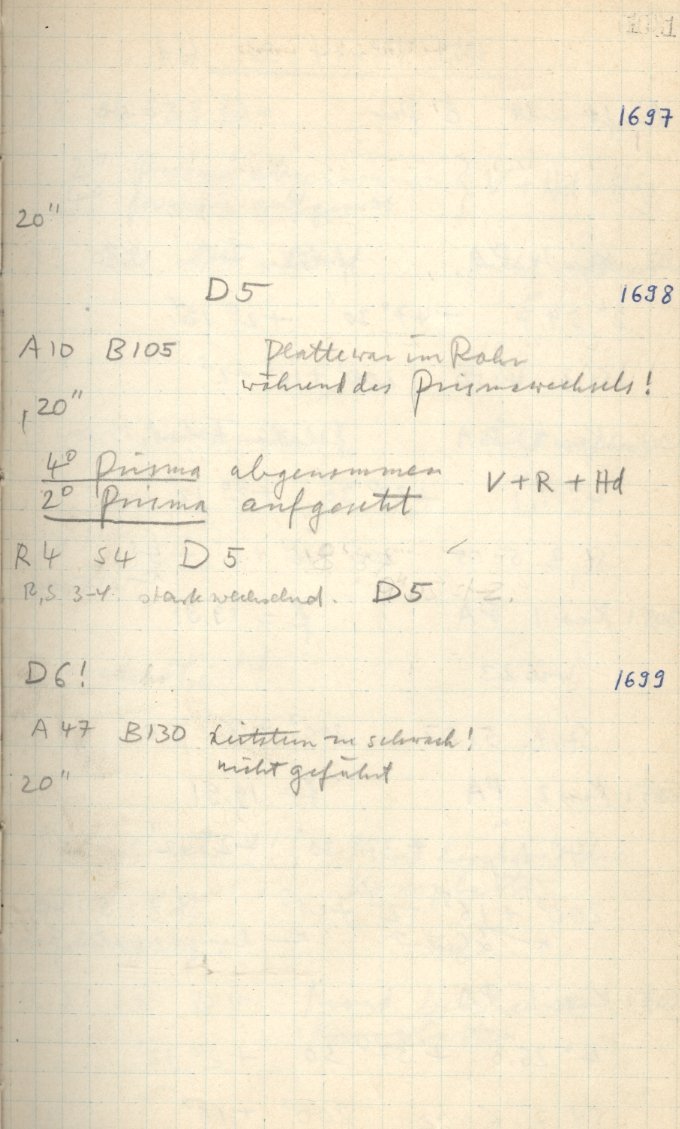 1697
20"
D5 1698
A10 B105 Platte war im Rohr
während des Prismawechsels!
20"
4° Prisma abgenommen V + R + Hd
2° Prisma aufgesetzt
R4 S4 D5
R,S 3-4 stark wechselnd. D5
D6! 1699
A47 B130 Leitstern zu schwach!
nicht geführt
20"